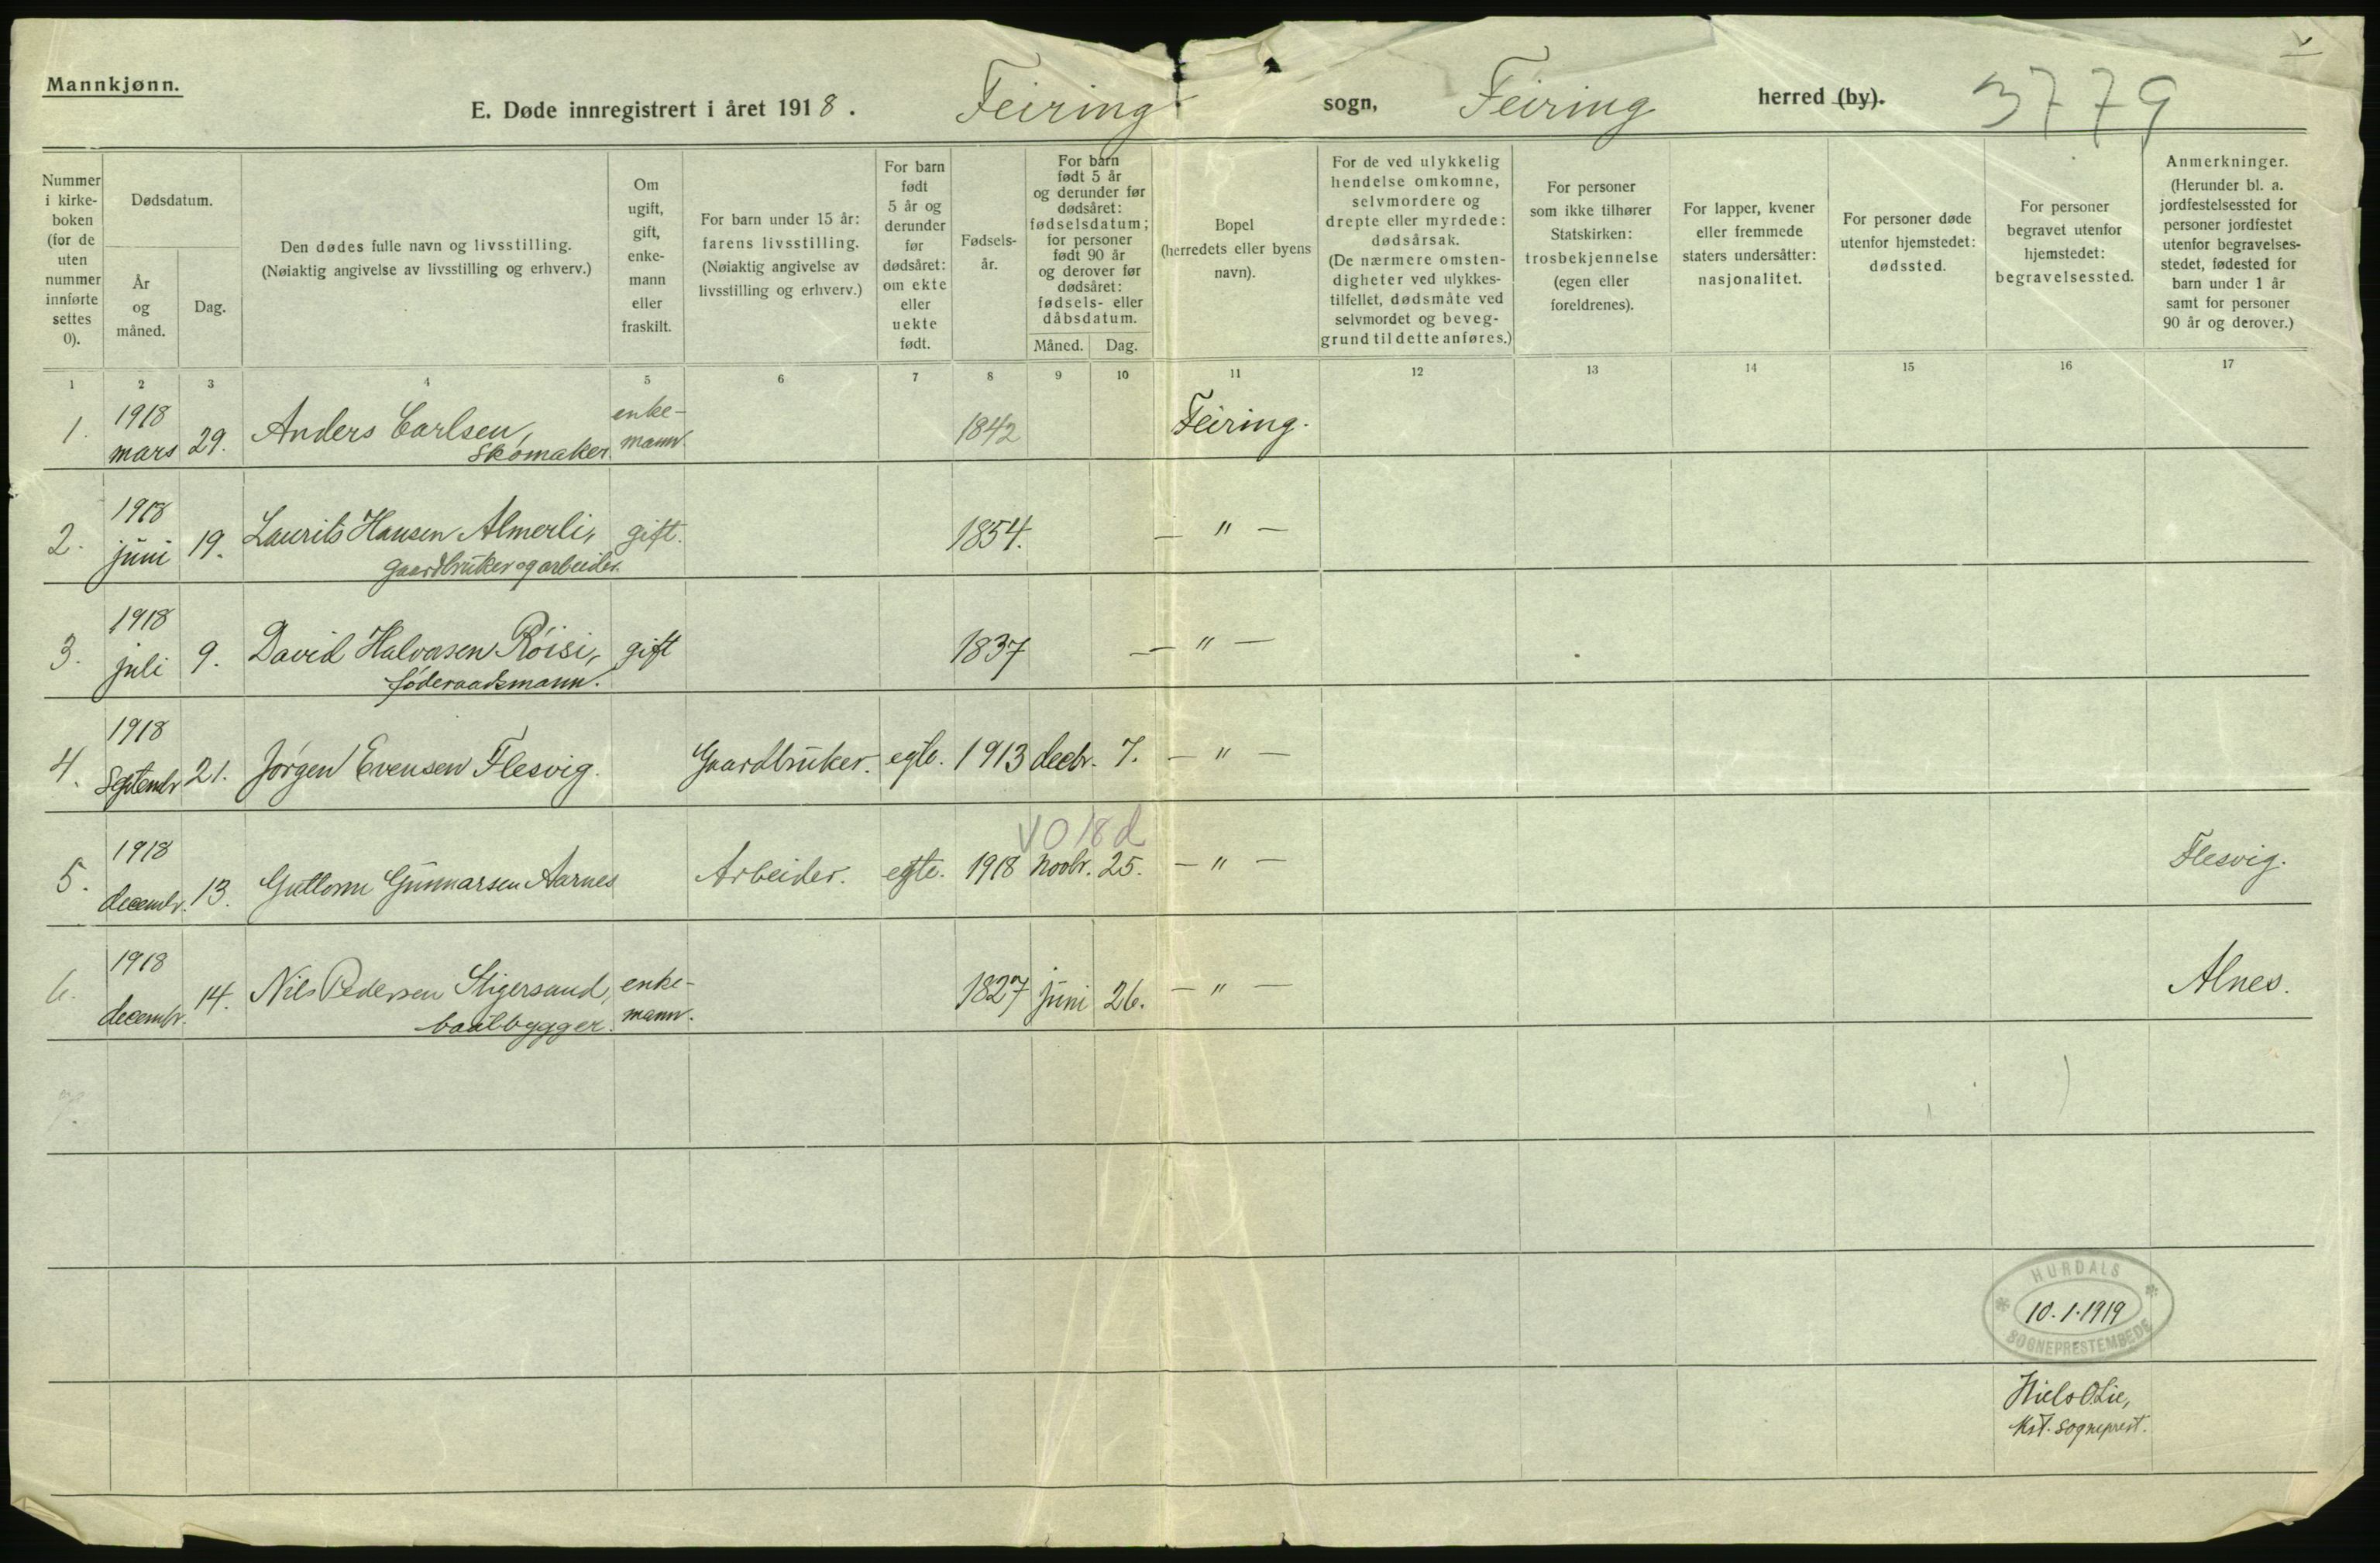 Mannkjønn.
E. Døde innregistrert i året 1918. Feiring sogn, Feiring herred (by). 3779
Nummer i kirke-boken (for de uten nummer innførte settes 0).
Dødsdatum.
År og måned.
Dag.
Den dødes fulle navn og livsstilling.
(Nøiaktig angivelse av livsstilling og erhverv.)
Om ugift, gift, enke-mann eller fraskilt.
For barn under 15 år: farens livsstilling.
(Nøiaktig angivelse av livsstilling og erhverv.)
For barn født 5 år og derunder før dødsåret: om ekte eller uekte født.
Fødsels-år.
For barn født 5 år og derunder før dødsåret: fødselsdatum; for personer født 90 år og derover før dødsåret: fødsels- eller dåbsdatum.
Måned. Dag.
Bopel (herredets eller byens navn).
For de ved ulykkelig hendelse omkomne, selvmordere og drepte eller myrdede: dødsårsak.
(De nærmere omsten-digheter ved ulykkes-tilfellet, dødsmåte ved selvmordet og beveg-grund til dette anføres.)
For personer som ikke tilhører Statskirken: trosbekjennelse (egen eller foreldrenes).
For lapper, kvener eller fremmede staters undersåtter: nasjonalitet.
For personer døde utenfor hjemstedet: dødssted.
For personer begravet utenfor hjemstedet: begravelsessted.
Anmerkninger.
(Herunder bl. a. jordfestelsessted for personer jordfestet utenfor begravelses-stedet, fødested for barn under 1 år samt for personer 90 år og derover.)
1 2 3 4 5 6 7 8 9 10 11 12 13 14 15 16 17
1. 1918 mars 29. Anders Carlsen, Skomaker. enke-mann. 1842 Feiring.
2. 1918 juni 19. Laurits Hansen Almerli, gaardbruker og arbeider. gift. 1854. — " —
3. 1918 juli 9. David Halvorsen Röisi, föderaadsmann. gift 1837 — " —
4. 1918 Septembr 21. Jørgen Evensen Flesvig. Gaardbruker. egte. 1913 decbr. 7. — " —
018d
5. 1918 decembr. 13. Guttorm Gunnarsen Aarnes Arbeider. egte. 1918 novbr. 25. — " — Flesvig.
6. 1918 decembr. 14. Nils Pedersen Stigersand, baatbygger. enke-mann. 1827 juni 26. — " — Alnes.
7.
HURDALS
10.1.1919
SOGNEPRESTEMBEDE
Niels O. Lie,
Kst. sogneprest.